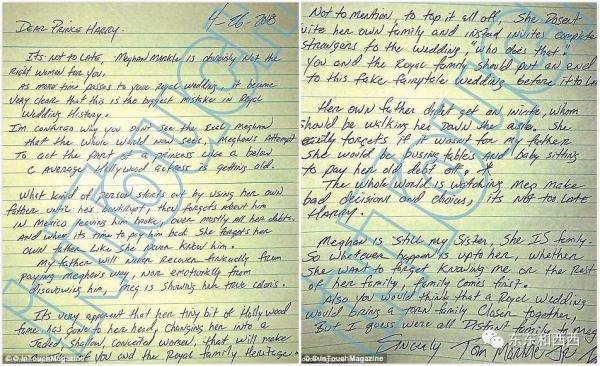 4-26-2018
DEAR PRINCE HARRY,
It's not to late, Meghan Markle is obviously not the
Right women for you.
As more time passes to your Royal wedding, it became
very clear that this is the biggest mistake in Royal
Wedding History.
I'm confused why you don't see the Real Meghan
that the whole world now sees. Meghan's Attempt
To act the part of a princess like a below
C average Hollywood actress is getting old.
What kind of person starts out by using her own
father until he's bankrupt, then forgets about him
in Mexico leaving him broke, over mostly all her debts.
And when it's time to pay him back she forgets her
own father like she never knew him.
My father will never recover financially from
paying Meghan's way, nor emotionally from
disavowing him, Meg is showing her true colors.
It's very apparent that her tiny bit of Hollywood
fame has gone to her head, changing her into a
Jaded, shallow, conceited women, that will make
of you and the Royal family Heritage.
© InTouchMagazine
Not to mention, to top it all off, She Dosent
invite her own family and instead invites complete
strangers to the wedding, "who does that."
you and the Royal family should put an end
to this fake fairytale wedding before it to late
Her own father didnt get an invite, whom
should be walking her down the aisle. She
easily forgets if it wasnt for my father
She would be busing tables and baby sitting
to pay her old debt of.
The whole world is watching Meg make
bad decisions and choices, its not too late
Harry.
Meghan is still my Sister, She IS family.
So whatever happen is up to her, whether
She want to forget knowing me or the Rest
of her family, family comes first.
Also you would think that a Royal Wedding
would bring a torn family closer together,
But I guess we're all Distant family to Meg
Sincerly Tom Markle Jr.
© InTouchMagazine
东东和西西